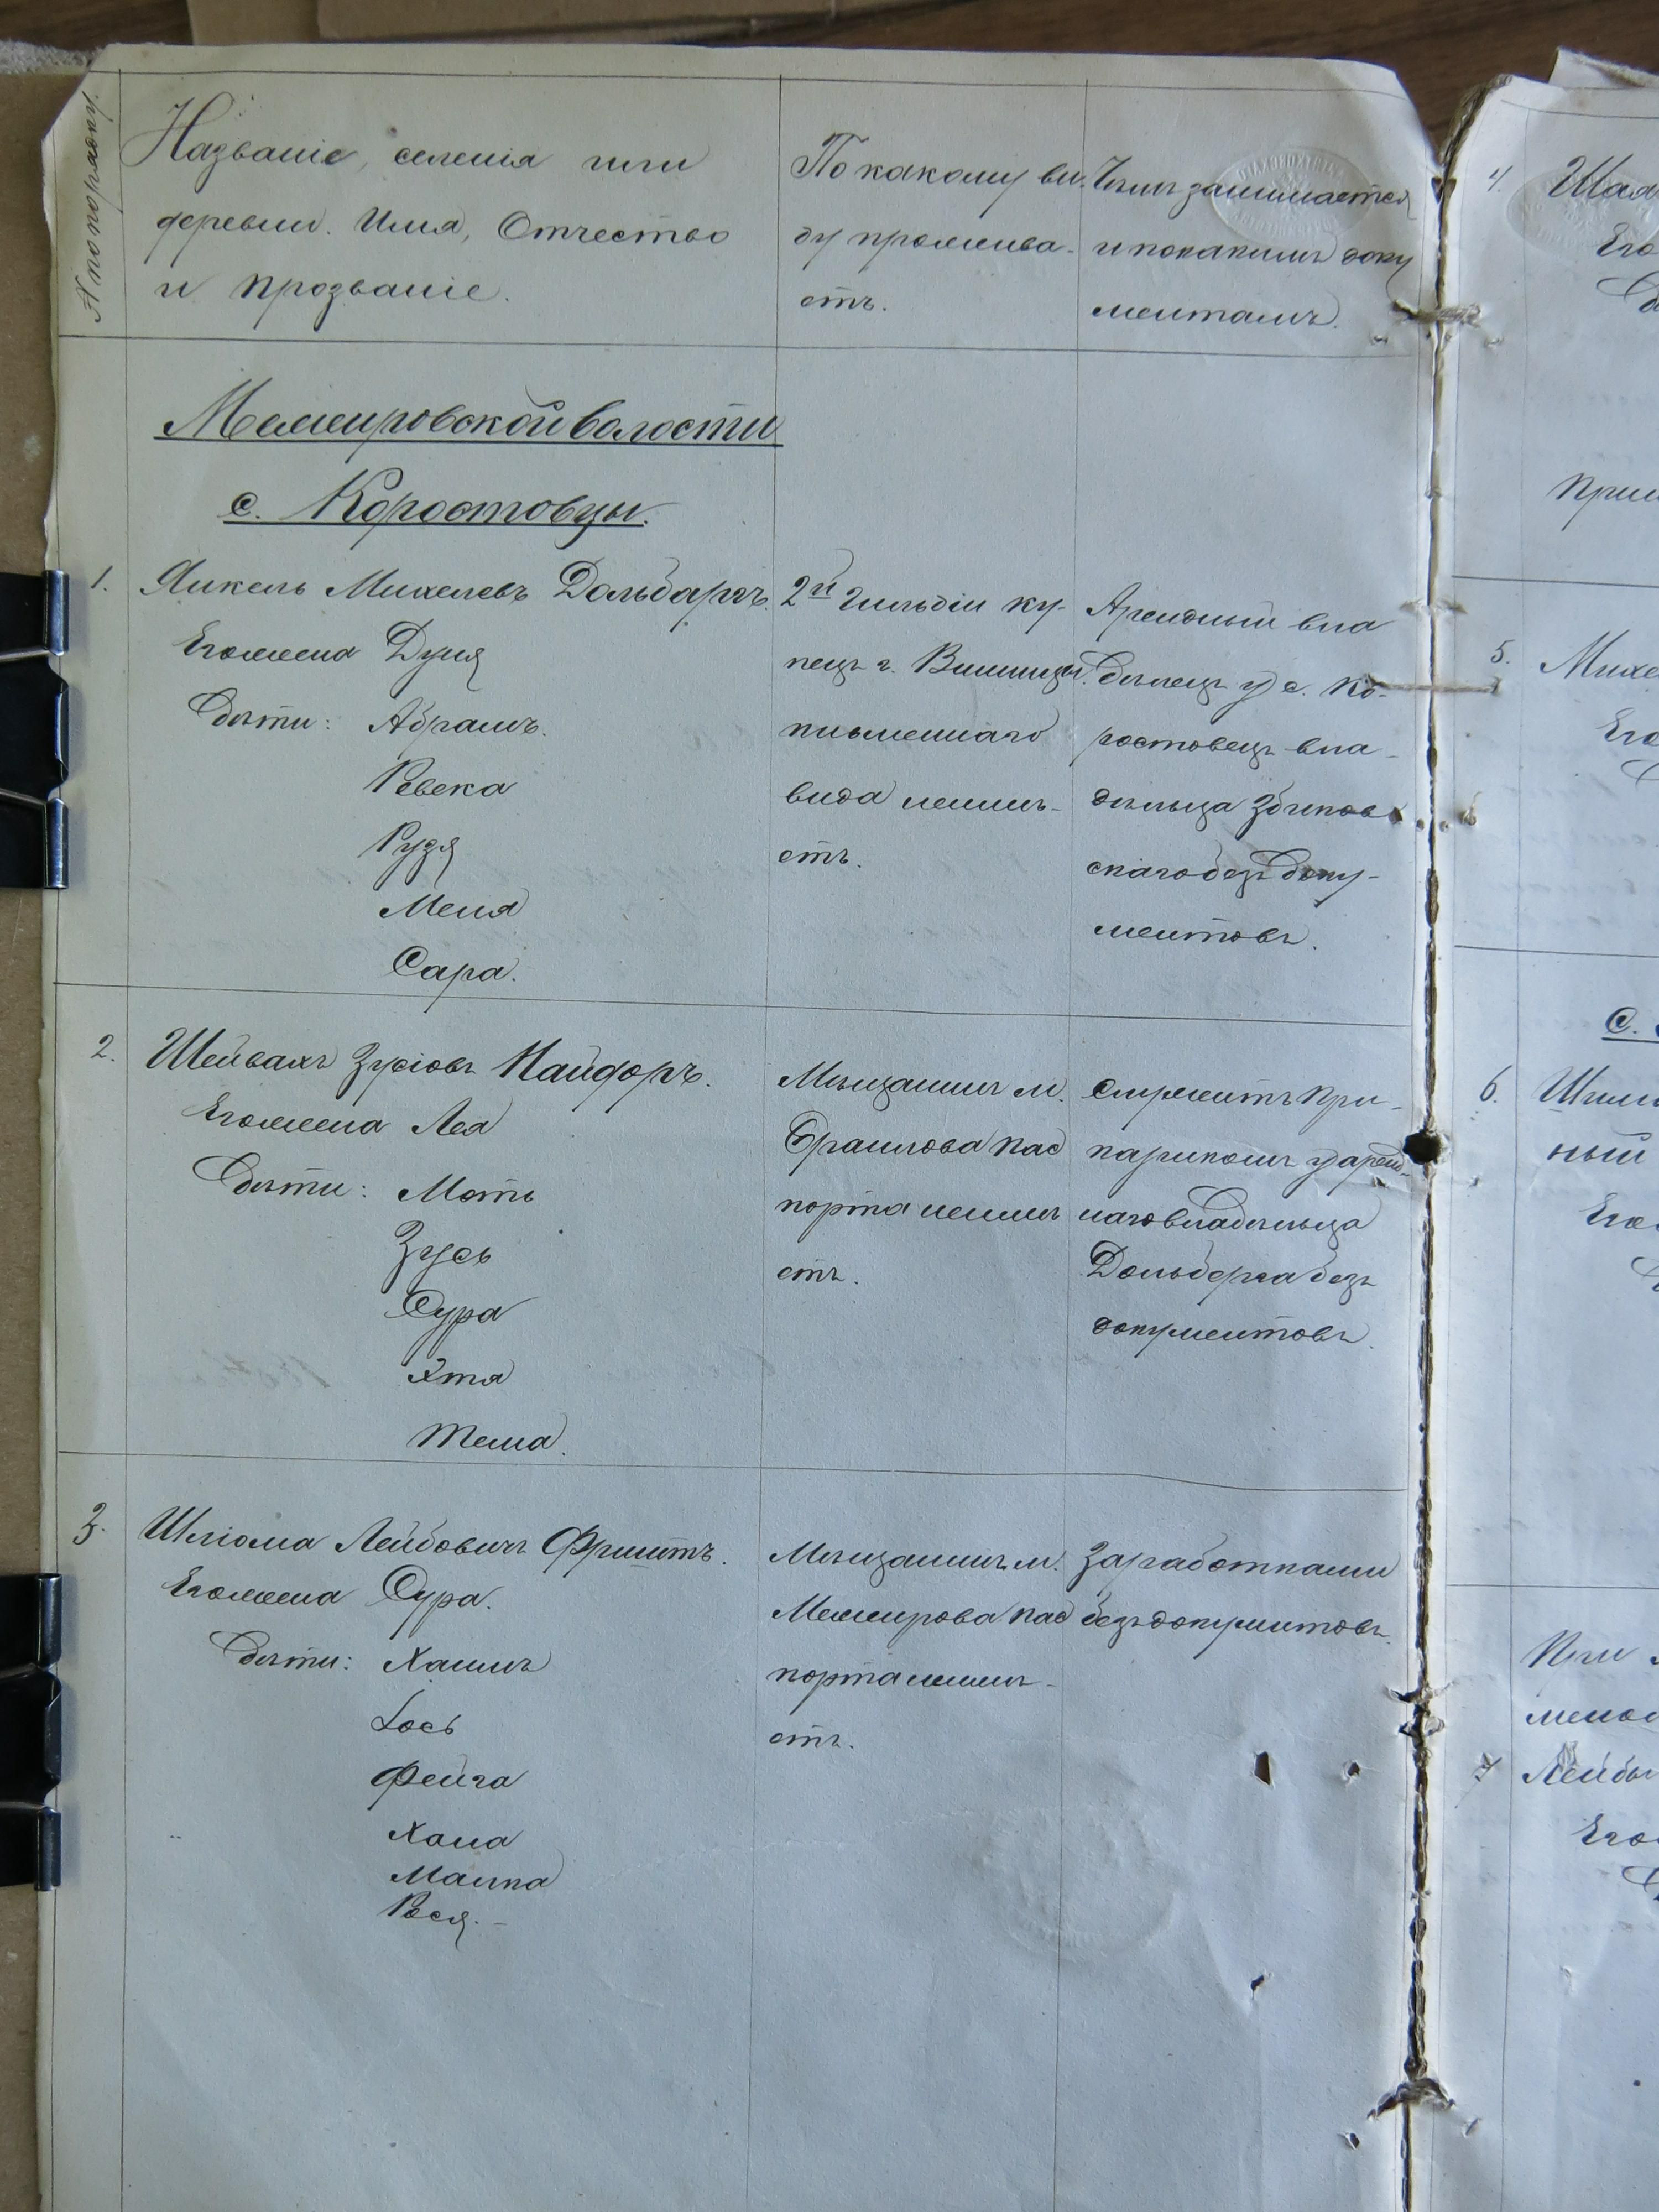 № по порядку.
Названіе, селенія или
деревни. Имя, Отчество
и прозваніе.
По какому ви-
ду прожива-
етъ.
Чѣмъ занимается
и по какимъ доку
ментамъ.
Межировской волости
с. Коростовцы.
1. Янкель Михелевъ Дольбергъ.
Его жена Дуня
Дѣти: Абрамъ.
Ревека
Рузя
Меня
Сара.
2й гильдіи ку-
пецъ г. Винницы.
письменнаго
вида неимѣ-
етъ.
Арендный вла
дѣлецъ у с. Ко-
ростовецъ вла-
дѣльца
скаго безъ доку-
ментовъ.
2. Шейвахъ Зусіовъ Найдоръ.
Его жена Лея
Дѣти: Моть
Зусь
Сура
Хтя
Тема.
Мѣщанинъ м.
Браилова пас
порта неимѣ
етъ.
Служитъ при-
кащикомъ у аренд-
наго владѣльца
Дольберга безъ
документовъ.
3. Шліома Лейбовичъ Фриштъ.
Его жена Сура.
Дѣти: Хаимъ
Іось
Фейга
Хана
Малка
Рося.-
Мѣщанинъ м.
Межирова пас
порта неимѣ-
етъ.
Заработками
безъ документовъ.
4.
Его
При
5. Михе
Его
с.
6.
ный
Его
При
7 Лейбы
Его